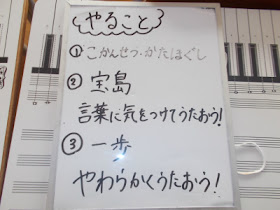 やること
① こかんせつ・かたほぐし
② 宝島
言葉に気をつけてうたおう!
③ 一歩
やわらかくうたおう!